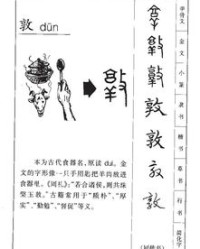 敦 dūn
本为古代食器名，原读 duì。金
文的字形像一只手用匙把羊肉放进
食器里。《周礼》：“若合诸侯，则共珠
槃玉敦。”古籍常用于“质朴”、“厚
实”、“勤勉”、“督促”等义。
敦
敦
敦
甲骨文
金文
小篆
隶书
楷书
草书
行书
简化字
(同楷书)